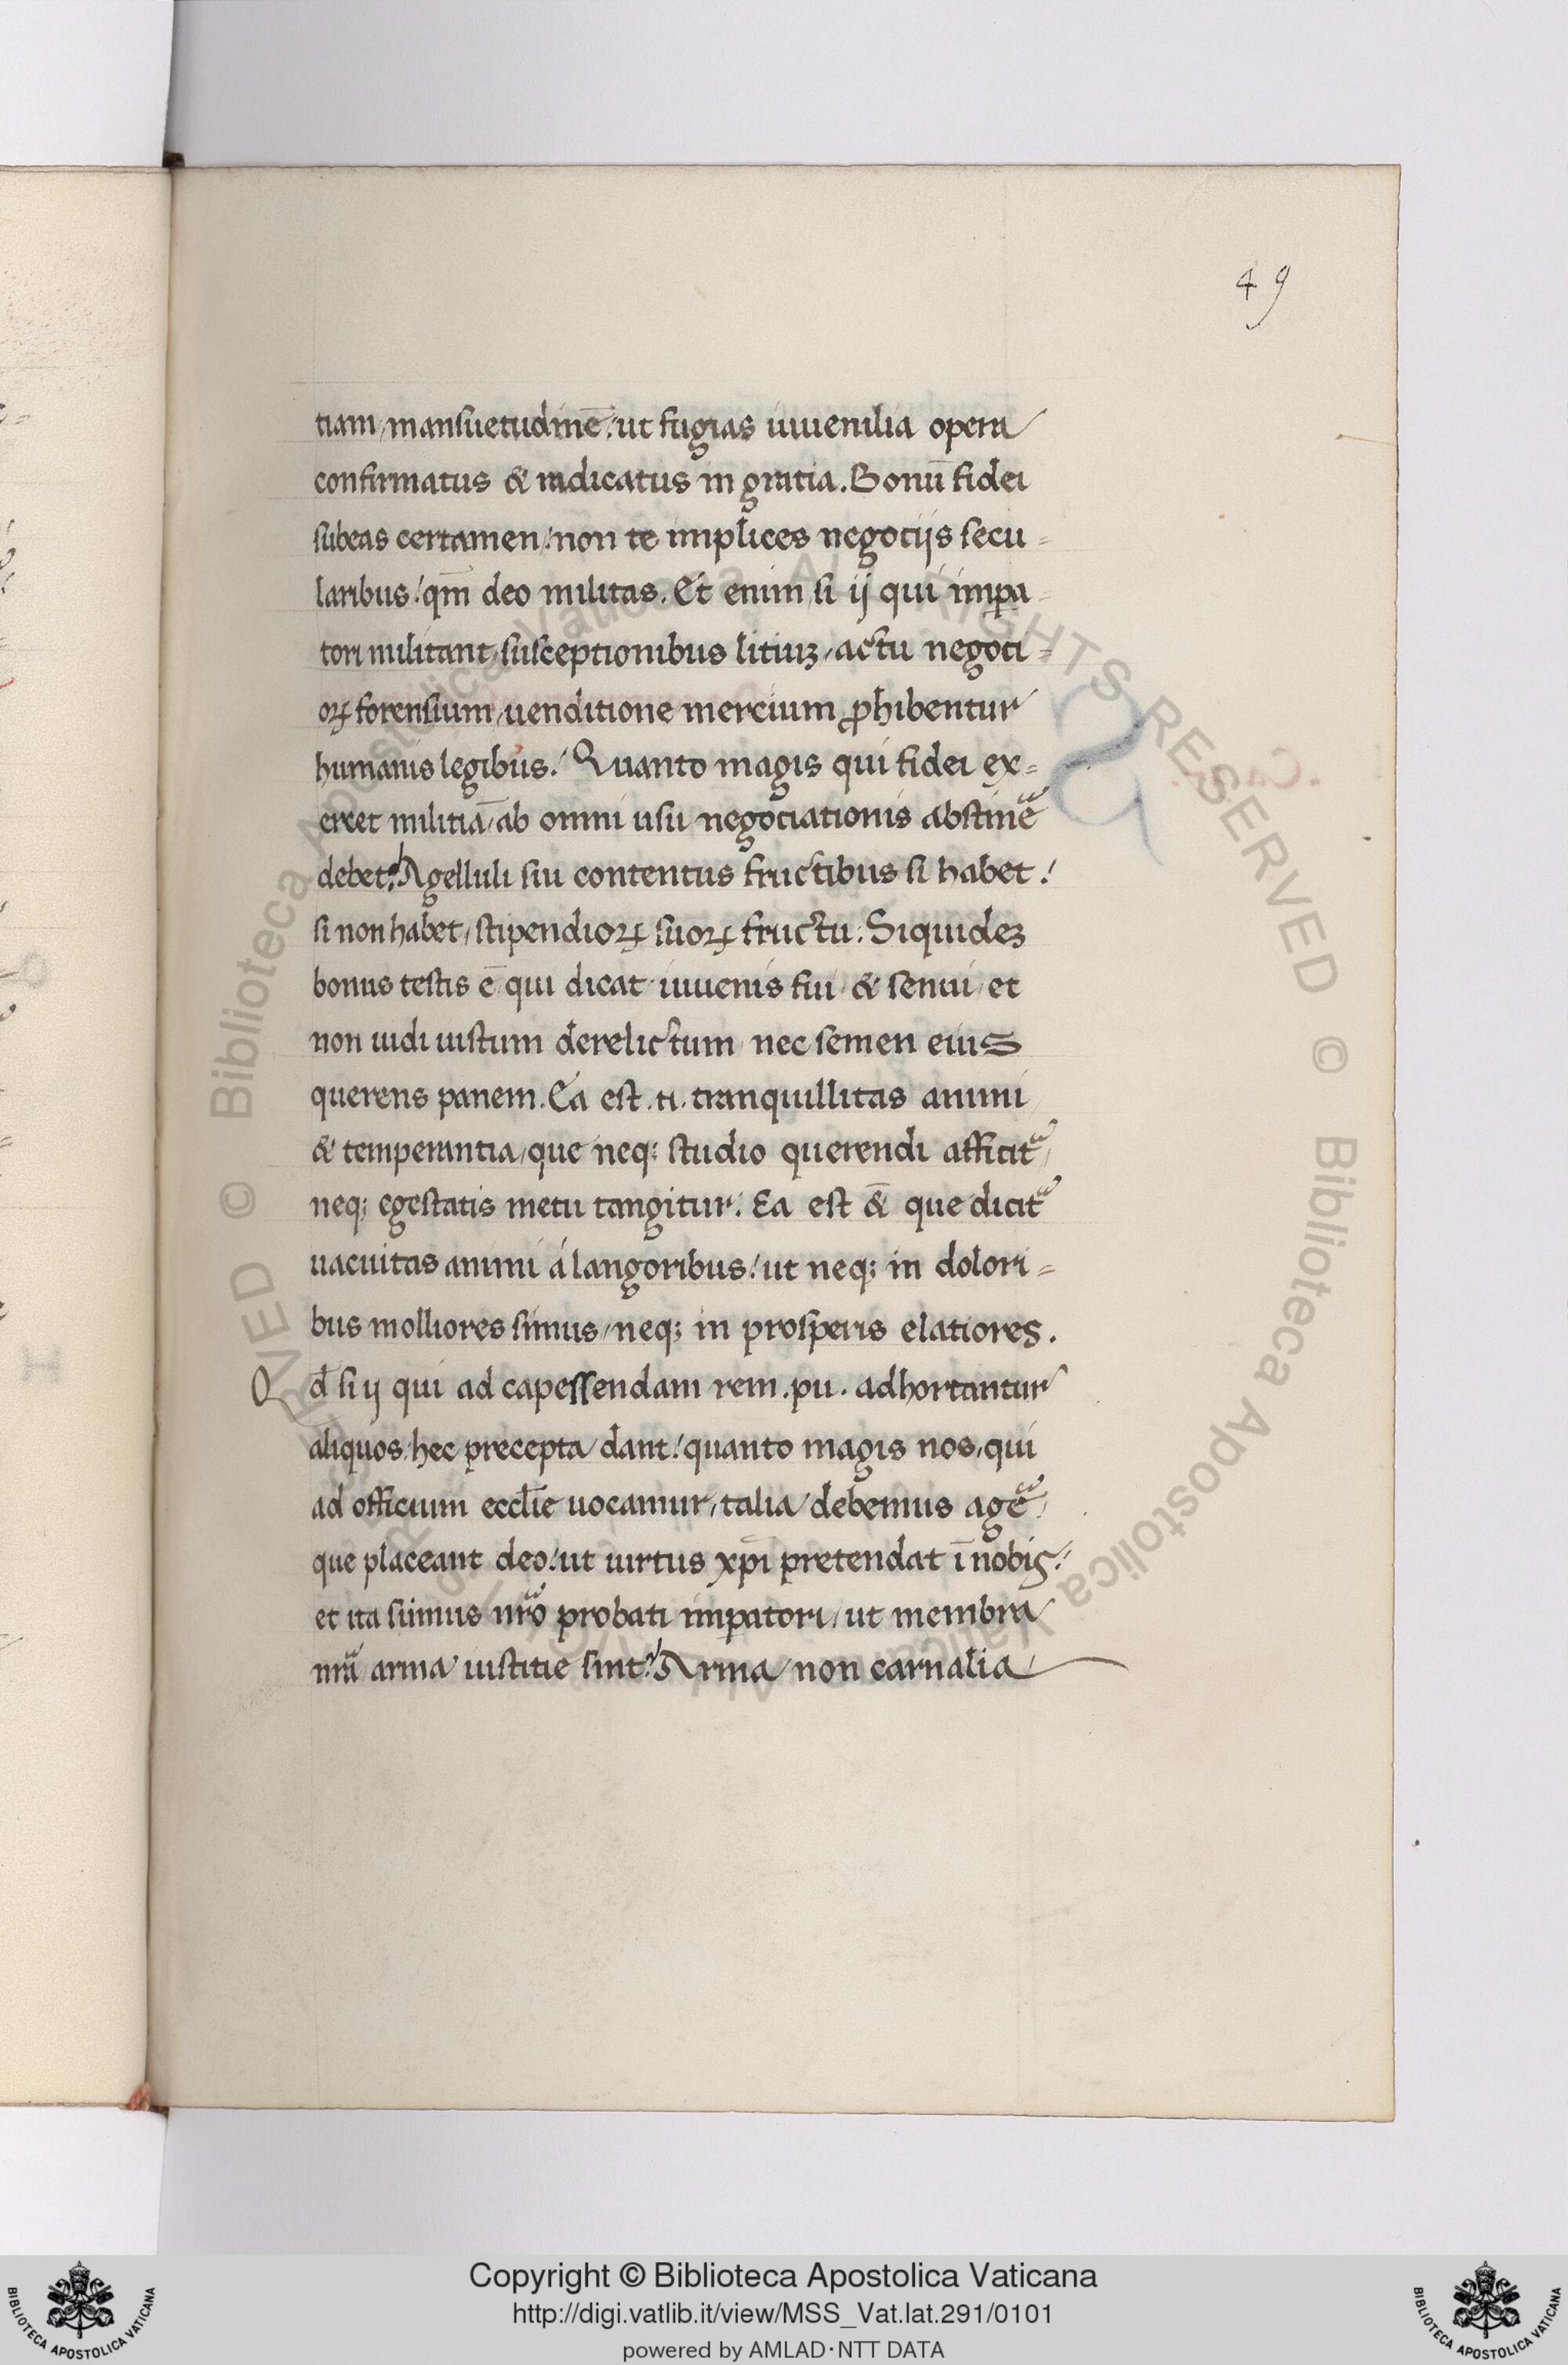 49
tiam, mansuetudinē: ut fugias iuuenilia opera
confirmatus & radicatus in gratia. Bonū fidei
subeas certamen: non te implices negocijs secu=
laribus: qm̄ deo militas. Et enim si ij qui imꝑa
tori militant, susceptionibus litiuꝫ, actu negoti=
oꝝ forensium, uenditione mercium ꝓhibentur
humanis legibus: Quanto magis qui fidei ex=
ercet militiā, ab omni usu negociationis abstinē
debet? Agelluli sui contentus fructibus si habet:
si non habet, stipendioꝝ suoꝝ fructu: Siquideꝫ
bonus testis ē qui dicat iuuenis fui & senui et
non uidi iustum derelictum nec semen eius
querens panem. Ea est .n. tranquillitas animi
& temperantia, que neqꝫ studio querendi afficit᷑,
neqꝫ egestatis metu tangitur. Ea est &̄ que dicit᷑
uacuitas animi á langoribus: ut neqꝫ in dolori=
bus molliores simus, neqꝫ in prosperis elatiores.
Qd̄ si ij qui ad capessendam rem .pu. adhortantur
aliquos, hec precepta dant: quanto magis nos, qui
ad officium eccl̄ie uocamur, talia debemus agē,
que placeant deo: ut uirtus xp̄i pretendat ī nobis:
et ita simus nr̄o probati imꝑatori, ut membra
nr̄a arma iustitie sint? Arma non carnalia
Copyright © Biblioteca Apostolica Vaticana
http://digi.vatlib.it/view/MSS_Vat.lat.291/0101
powered by AMLAD·NTT DATA